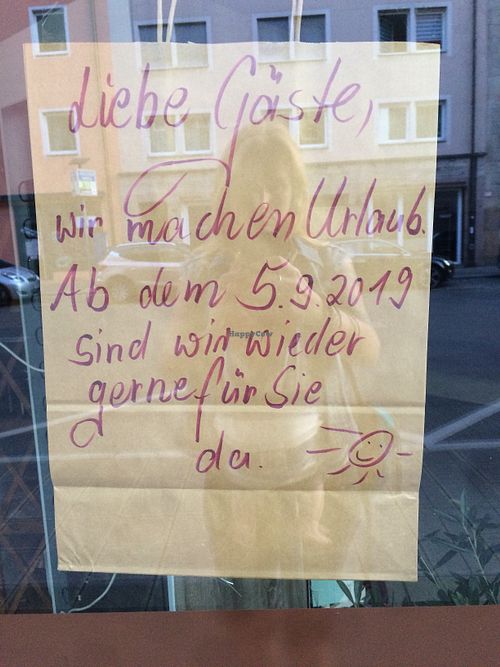 Liebe Gäste,
wir machen Urlaub.
Ab dem 5.9.2019
sind wir wieder
gerne für Sie
da.
HappyCow